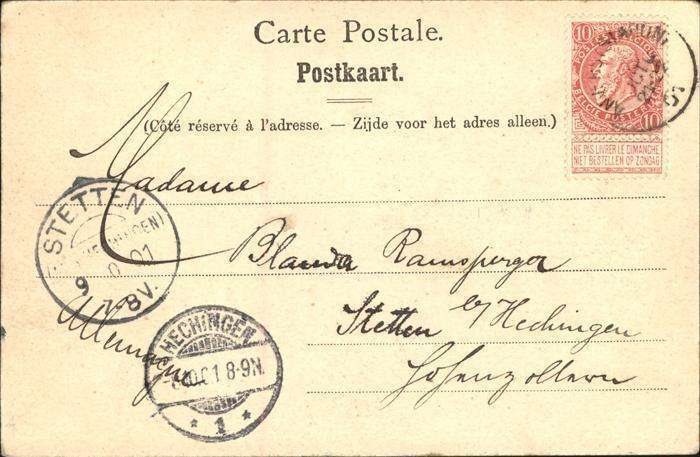 Carte Postale.
Postkaart.
(Côté réservé à l'adresse. — Zijde voor het adres alleen.)
10 10
BELGIE POSTES
10
NE PAS LIVRER LE DIMANCHE
NIET BESTELLEN OP ZONDAG
ANVERS
Madame
Blanda Ramsperger
Stetten b/ Hechingen
Hohenzollern
Allemagne
STETTEN
9 01
7-8V.
HECHINGEN
10.01 8-9N.
* 1 *